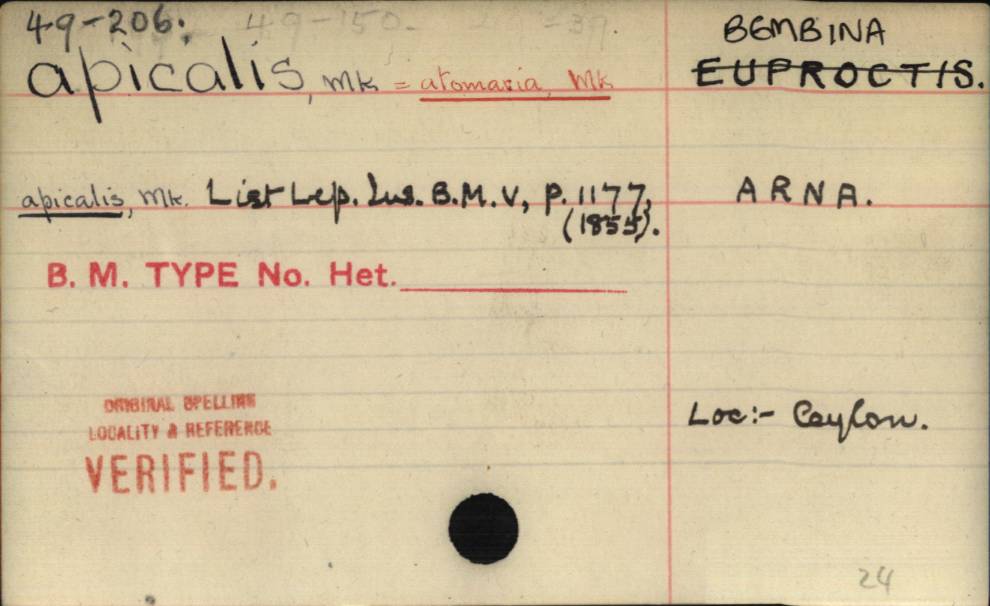 49-206. 49-150. =39.
BEMBINA
apicalis, Mk = atomaria, Mk EUPROCTIS.
apicalis, Mk. List Lep. Ins. B.M. V, p. 1177, ARNA.
(1855).
B. M. TYPE No. Het.
ORIGINAL SPELLING
LOCALITY & REFERENCE
VERIFIED.
Loc:- Ceylon.
24